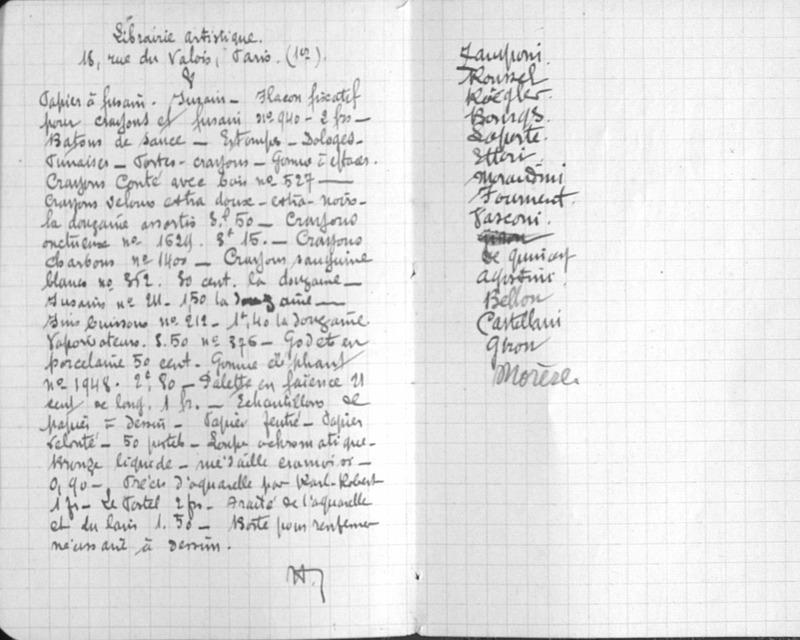 Librairie artistique.
18, rue du Valois, Paris. (1er).
Papier à fusain. Fusain – Flacon fixatif
pour crayons et fusain no 940 – 2 frs –
Batons de sauce – Estomps – Dolages –
Punaises – Portes-crayons – Gomme à effacer.
Crayons Conté avec bois no 527 –
Crayons velours extra doux – extra-noirs –
la douzaine assortis 3,f 50 – Crayons
onctueuse no 1629. 3f 15. – Crayons
charbons no 1400 – Crayons sanguine
blancs no 352. 30 cent. la douzaine –
Fusains no 211 – 1,50 la douzaine –
Fins buissons no 212 – 1f,40 la douzaine
Vaporisateurs. 3.50 no 376 – Godets en
porcelaine 50 cent. Gomme éléphant
no 1948. 2f,80 – Palette en faïence 21
cent de long. 1 fr. – Echantillons de
papier = Dessin – Papier feutré – Papier
velouté – 50 pastels – Loupe achromatique –
Bronze liquide – médaille cramoi or –
0,90 – Précis d'aquarelle par Karl-Robert
1 fr – Le Pastel 2 frs – Traité de l'aquarelle
et du lavis 1.50 – Boîte pour renfermer
nécessaire à dessin.
Zamponi.
Roussel
Koegler.
Bourgs.
Laporte.
Ettori.
Morandini
Fourment.
Vasconi.
Giron
de quincey
Agostini.
Bellon
Castellani
Giron
Morèse.